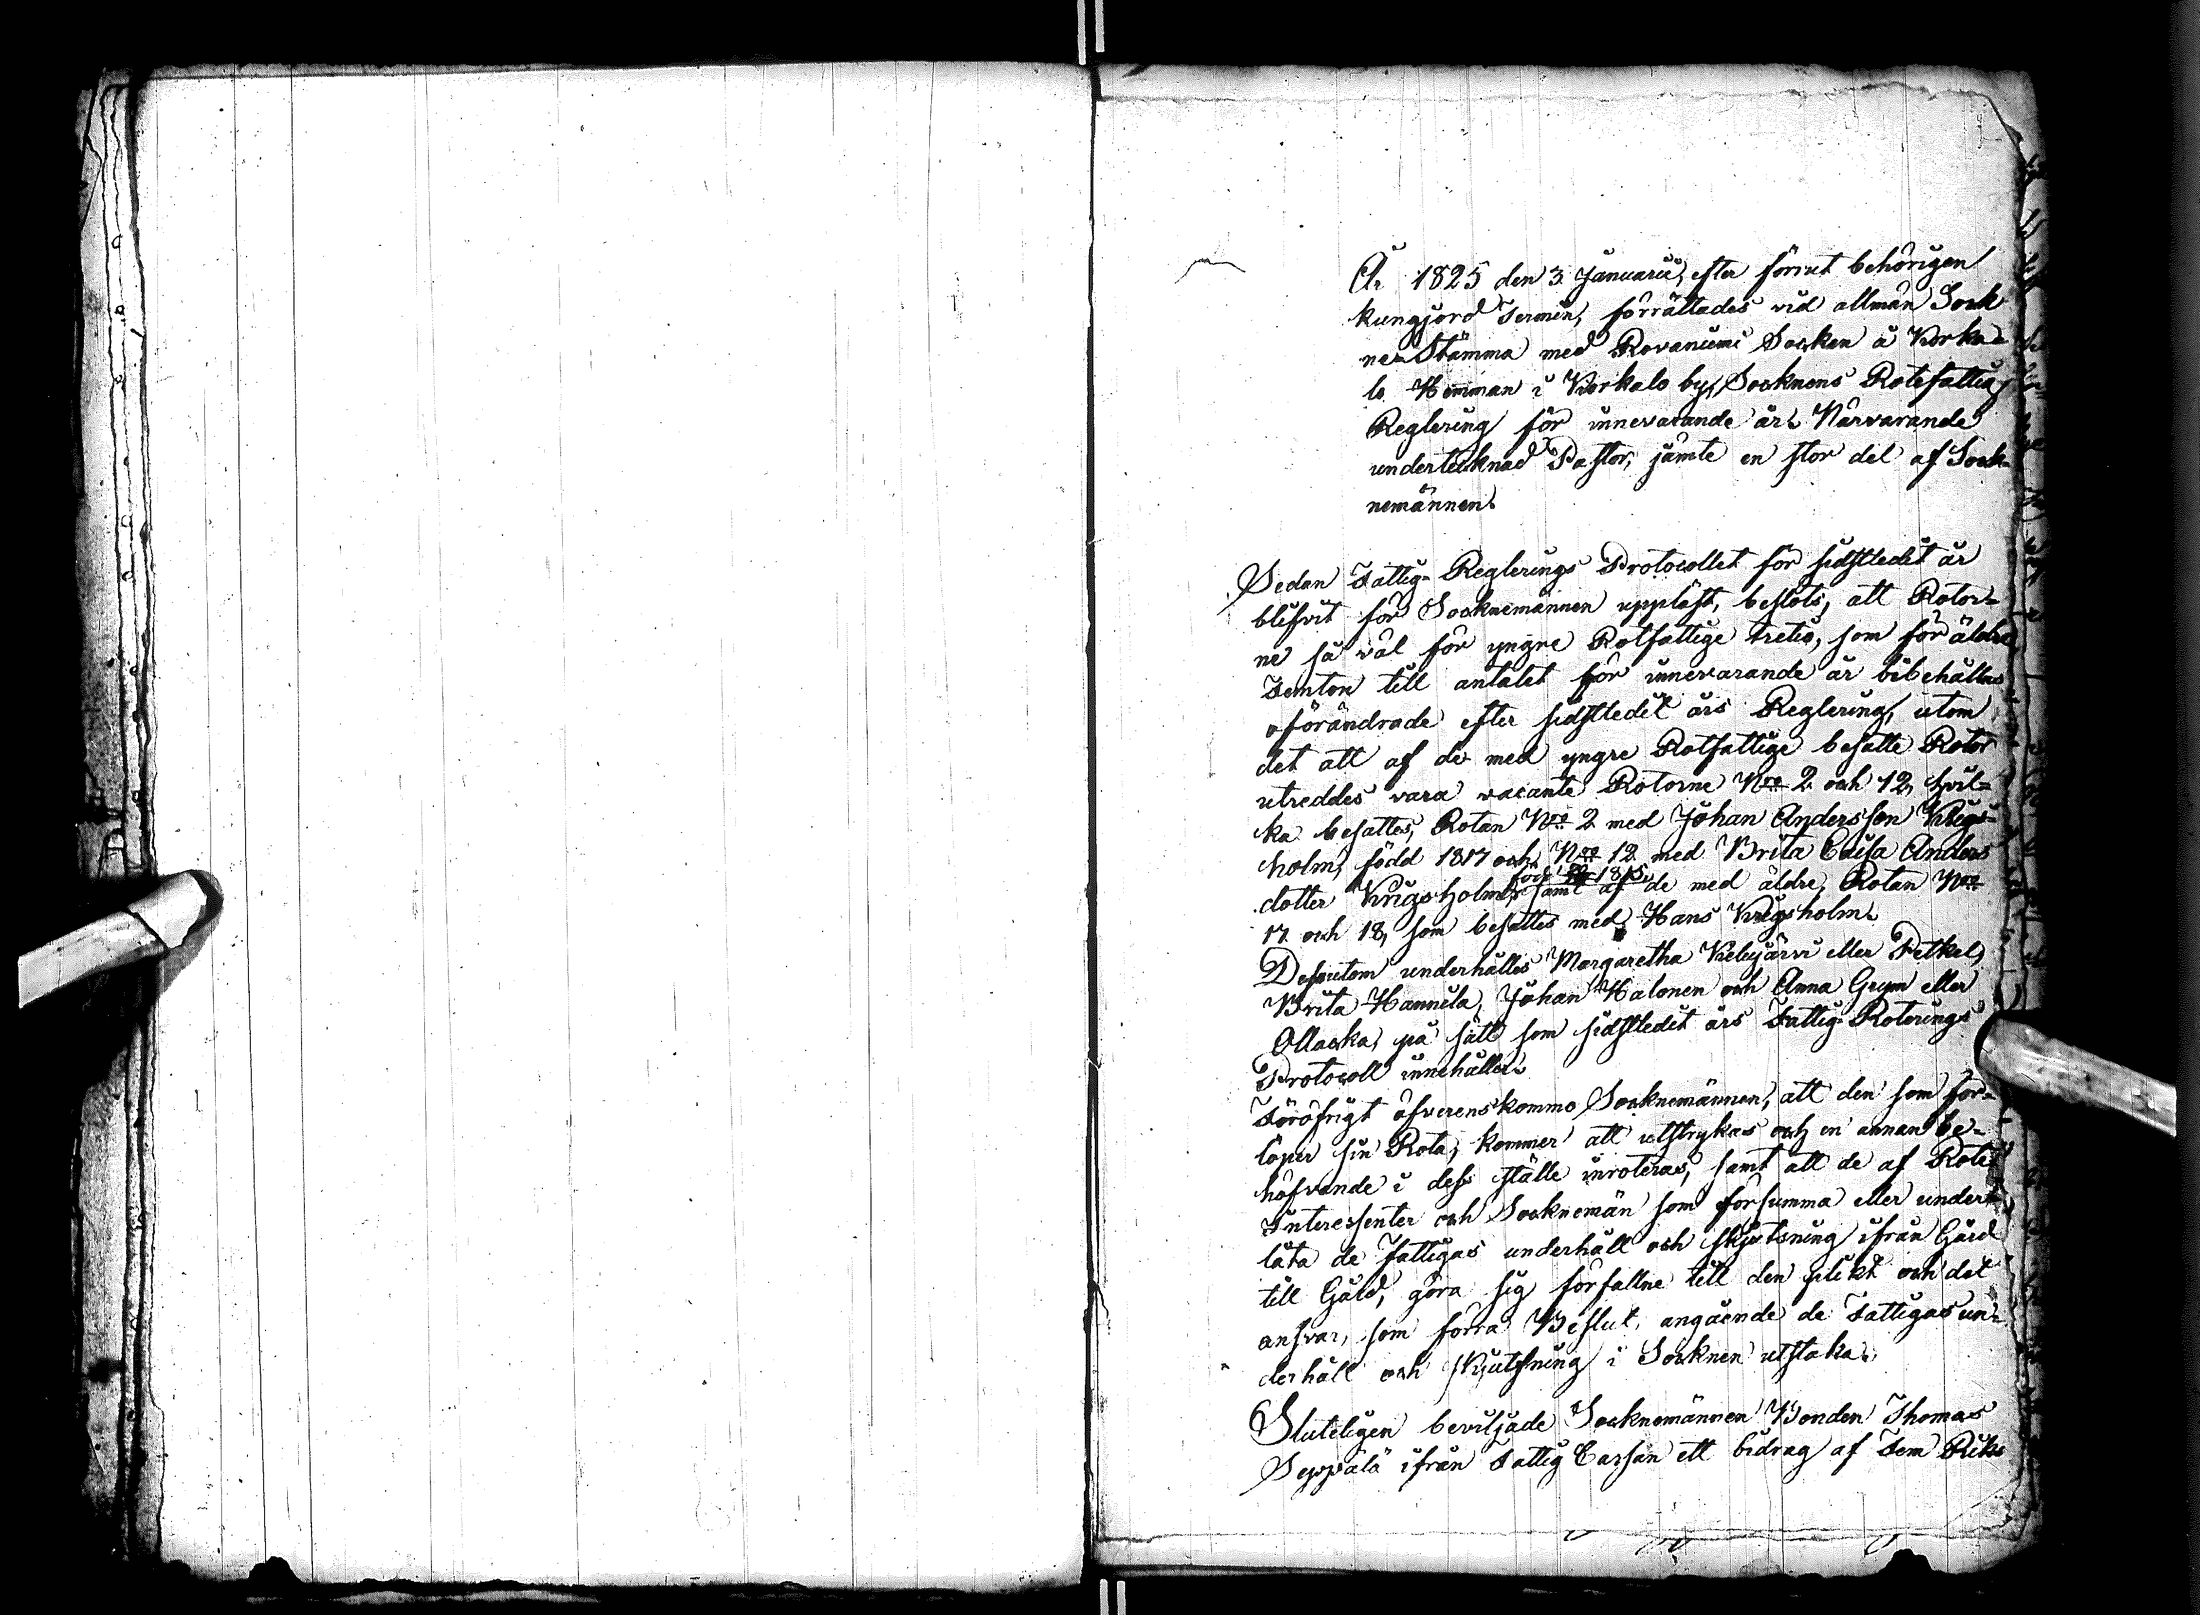 År 1825 den 3 Januarii, efter förrut behörigen
kungjord Termin, förrättades vid allmän Sock
ne-Stämma med Rovaniemi Socken å Korka-
lo Hemman i Korkalo by, Socknens Rotefattig
Reglering för innevarande år. Närvarande
undertecknad Pastor, jämte en stor del af Sock-
nemännen.
Sedan Fattig-Reglerings Protocollet för sidstledit år
blifvit för Socknemännen uppläst, beslöts, att Rotor-
ne så väl för yngre Rotfattige tretio, som för äldre
Femton till antalet för innevarande år bibehålles
oförändrade efter sidstledit års Reglering, utom
det att af de med yngre Rotfattige besatte Rotor
utreddes vara vacante Rotorne Nro 2 och 12, hvil-
ka besattes, Rotan Nro 2 med Johan Andersson Krigs
holm, född 1817 och Nro 12 med Brita Caisa Anders
född 1815
dotter Krigsholm, samt af de med äldre, Rotan Nro
17 och 18, som besattes med Hans Krigsholm.
Dessutom underhålles Margaretha Kelujärvi eller Petkel,
Brita Hannila, Johan Halonen och Anna Grym eller
Ollacka, på sätt som sidstledit års Fattig-Roterings
Protocoll innehåller.
Föröfrigt öfverenskommo Socknemännen, att den som för-
löper sin Rota, kommer att utstrykas och en annan be-
höfvande i dess ställe inroteras, samt att de af Rote
Interessenter och Socknemän som försumma eller under-
låta de Fattigas underhåll och skjutsning ifrån Gård
till Gård, göra sig förfallne till den plikt och det
ansvar, som förra Beslut, angående de Fattigas un-
derhåll och skjutsning i Socknen utstaka.
Sluteligen beviljade Socknemännen Bonden Thomas
Seppälä ifrån Fattig Cassan ett bidrag af Fem Riks